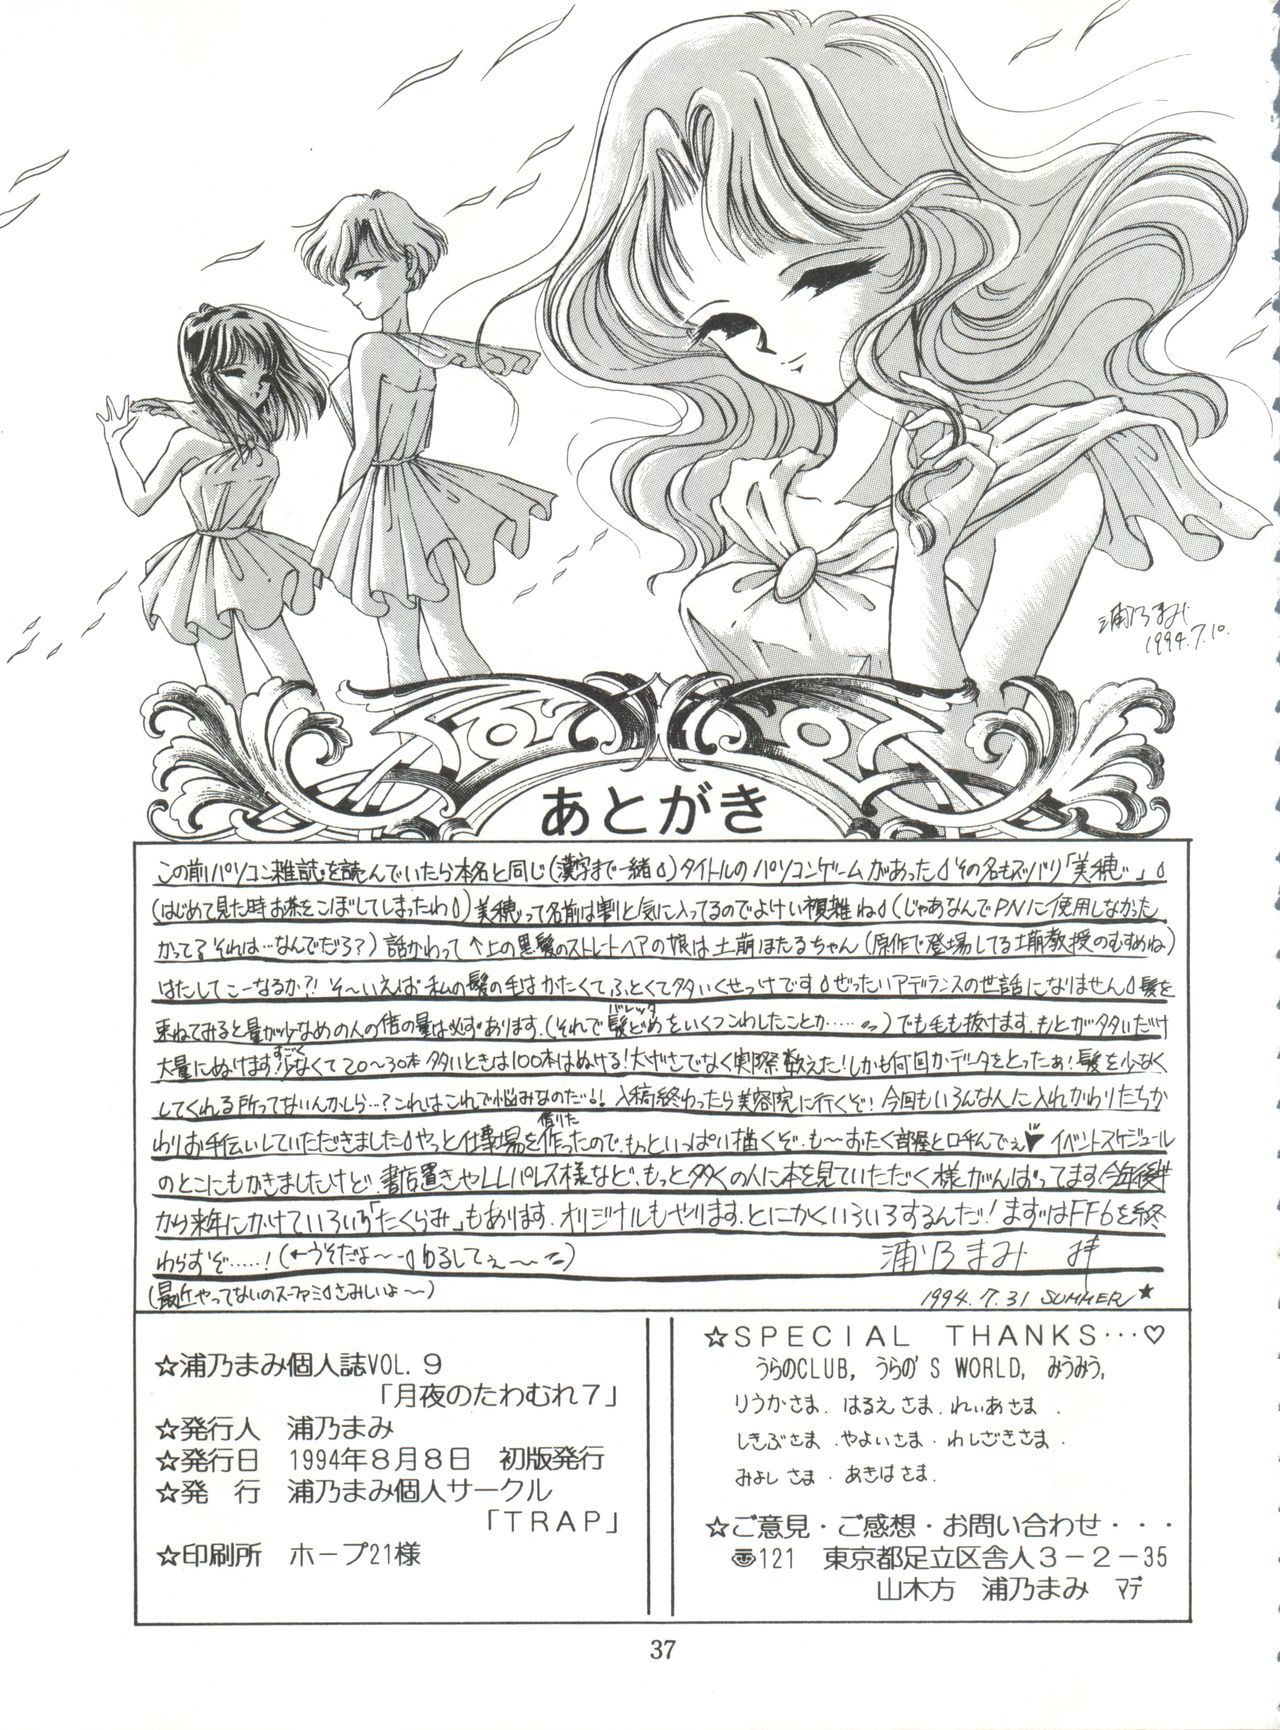 浦乃まみ
1994.7.10.
あとがき
この前パソコン雑誌を読んでいたら本名と同じ(漢字まで一緒)タイトルのパソコンゲームがあった その名もズバリ「美穂」
(はじめて見た時お茶をこぼしてしまったわ)美穂って名前は割と気に入ってるのでよけい複雑ね(じゃあなんでPNに使用しなかった
かって?それは…なんでだろ?)話かわって↑上の黒髪のストレートヘアの娘は土萠ほたるちゃん(原作で登場してる土萠教授のむすめね)
はたしてこーなるか?!そ〜いえば私の髪の毛はかたくてふとくて多いくせっけです ぜったいアデランスの世話になりません 髪を
束ねてみると量が少なめの人の倍の量は必ずあります.(それで髪どめをいくつこわしたことか……)でも毛も抜けます.もとが多いだけ
バレッタ
大量にぬけます!少なくて20〜30本多いときは100本はぬける!大げさでなく実際数えた!しかも何回かデータをとったぁ!髪を少なく
すごく
してくれる所ってないんかしら…?これはこれで悩みなのだ!入稿終わったら美容院に行くぞ!今回もいろんな人に入れかわりたちか
わりお手伝いしていただきました やっと仕事場を作ったので.もっといっぱい描くぞ.も〜おたく部屋とよんでぇ♥イベントスケジュール
借りた
のとこにもかきましたけど.書店置きやLLパレス様など.もっと多くの人に本を見ていただく様がんばってます!今年後半
から来年にかけていろいろ「たくらみ」もあります.オリジナルもやります.とにかくいろいろするんだ!まずはFF6を終
わらすぞ……!(←うそだよ〜 ゆるしてぇ〜)
浦乃まみ 拝
(最近やってないのスーファミ さみしいよ〜)
1994.7.31 SUMMER★
☆浦乃まみ個人誌VOL.9
「月夜のたわむれ7」
☆発行人 浦乃まみ
☆発行日 1994年8月8日 初版発行
☆発 行 浦乃まみ個人サークル
「TRAP」
☆印刷所 ホープ21様
☆SPECIAL THANKS…♡
うらのCLUB, うらの'S WORLD, みうみう,
りうかさま.はるえさま.れいあさま.
しきぶさま.やよいさま.わしざきさま.
みよしさま.あきはさま.
☆ご意見・ご感想・お問い合わせ・・・
〠121 東京都足立区舎人3-2-35
山木方 浦乃まみ マデ
37